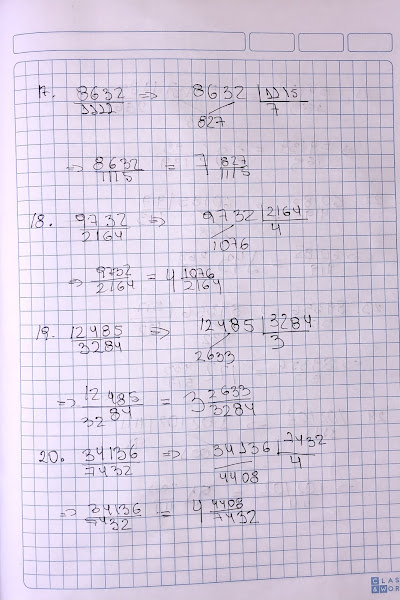 17. 8632/1111 => 8632 | 1115
827 7
=> 8632/1115 = 7 827/1115
18. 9732/2164 => 9732 | 2164
1076 4
=> 9732/2164 = 4 1076/2164
19. 12485/3284 => 12485 | 3284
2633 3
=> 12485/3284 = 3 2633/3284
20. 34136/7432 => 34136 | 7432
4408 4
=> 34136/7432 = 4 4408/7432